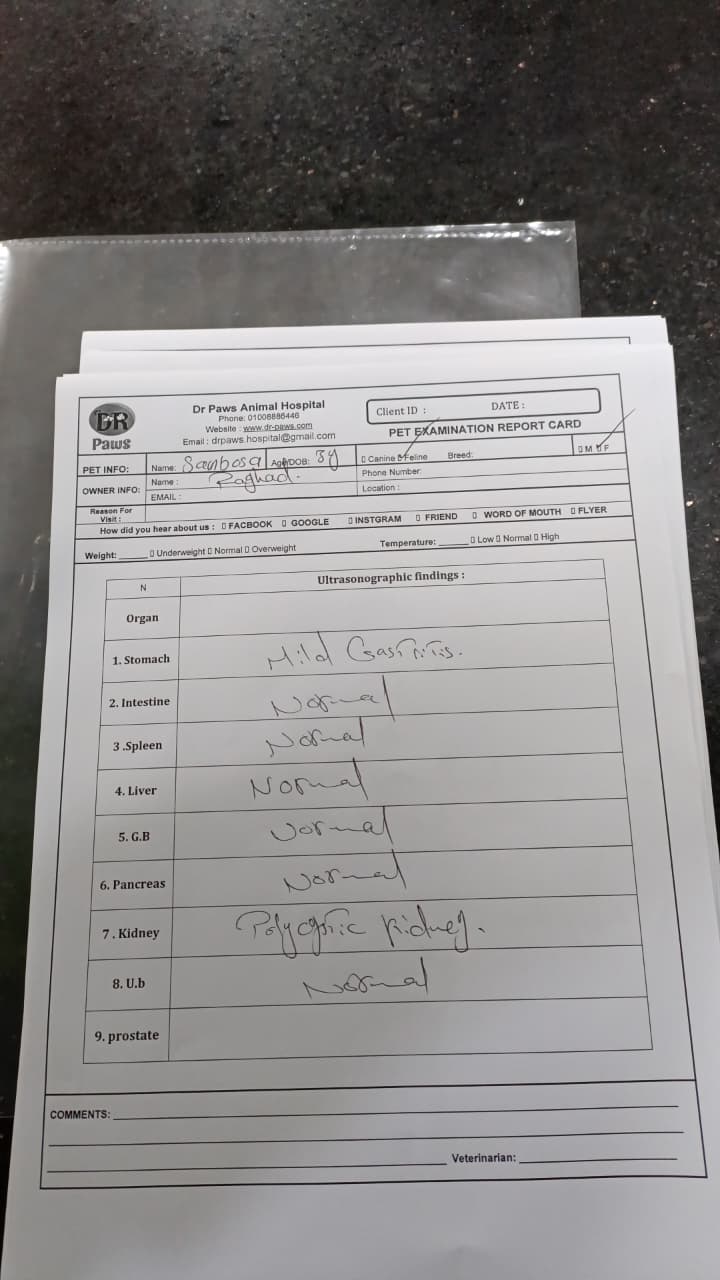 DR
Paws
Dr Paws Animal Hospital
Phone: 01006886446
Website : www.dr-paws.com
Email : drpaws.hospital@gmail.com
Client ID : DATE :
PET EXAMINATION REPORT CARD
PET INFO: Name: Sanbosa Age/DOB: 3y Canine Feline Breed: M F
OWNER INFO: Name : Raghad. Phone Number:
EMAIL : Location :
Reason For Visit :
How did you hear about us : FACBOOK GOOGLE INSTGRAM FRIEND WORD OF MOUTH FLYER
Weight: Underweight Normal Overweight Temperature: Low Normal High
N Ultrasonographic findings :
Organ
1. Stomach Mild Gastritis.
2. Intestine Normal
3 .Spleen Normal
4. Liver Normal
5. G.B Normal
6. Pancreas Normal
7. Kidney Polycystic kidney.
8. U.b Normal
9. prostate
COMMENTS:
Veterinarian: